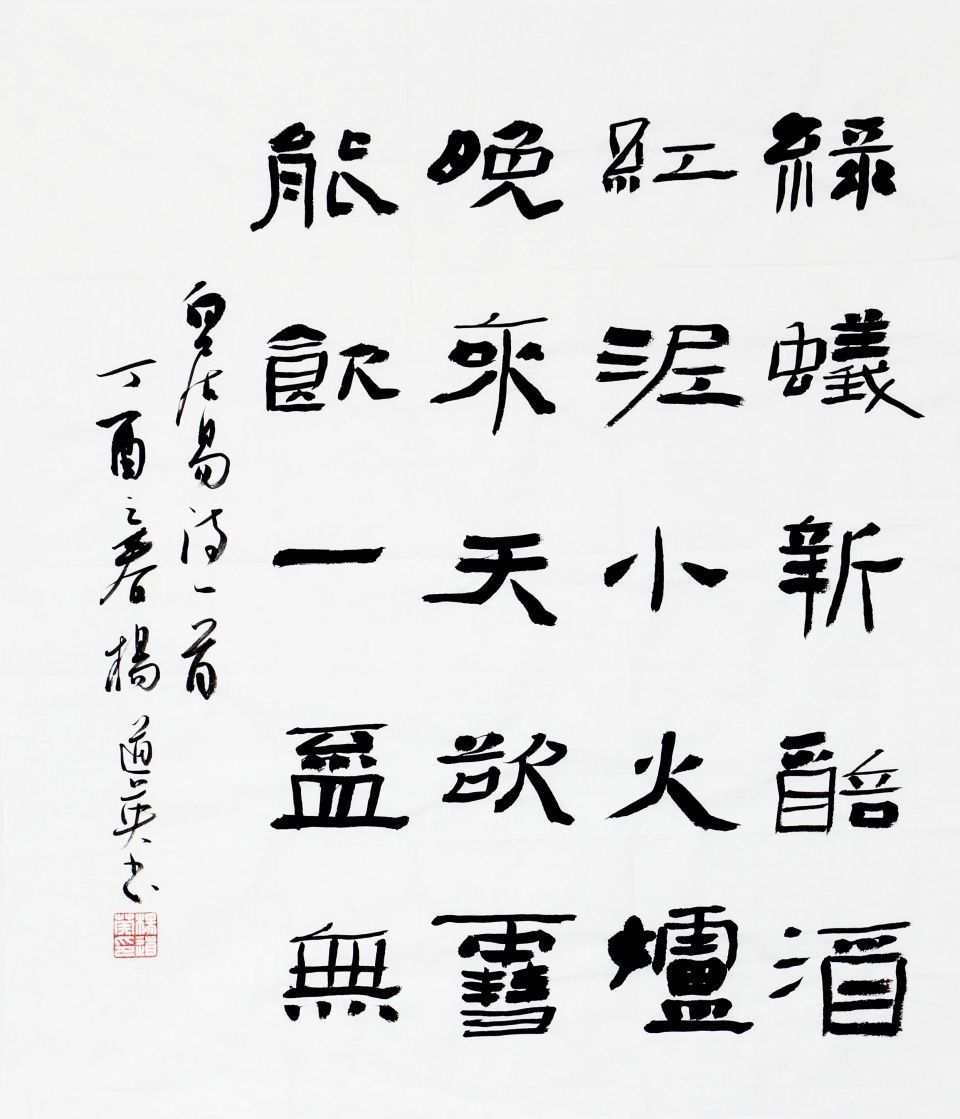 綠蟻新醅酒
紅泥小火爐
晚來天欲雪
能飲一盃無
白居易詩一首
丁酉之春楊道英書